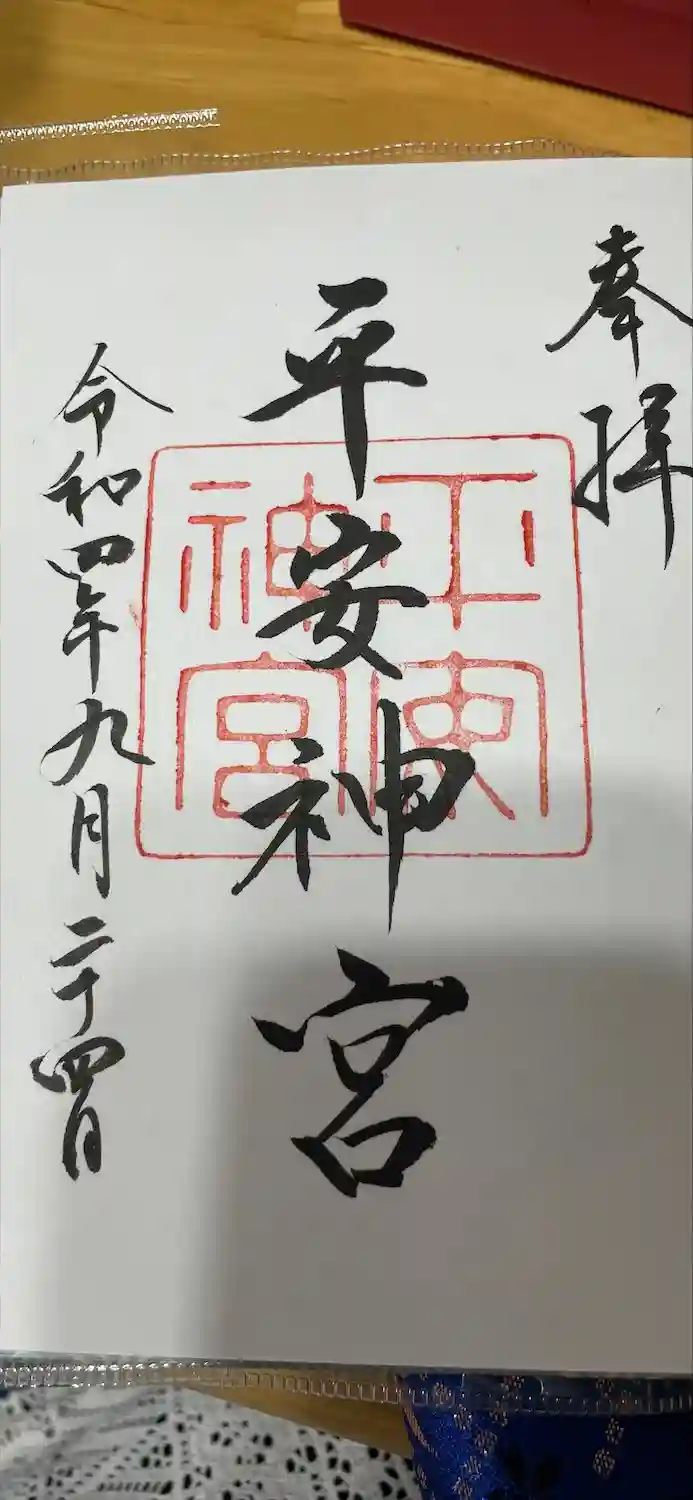 奉拝
平安神宮
令和四年九月二十四日
平安
神宮